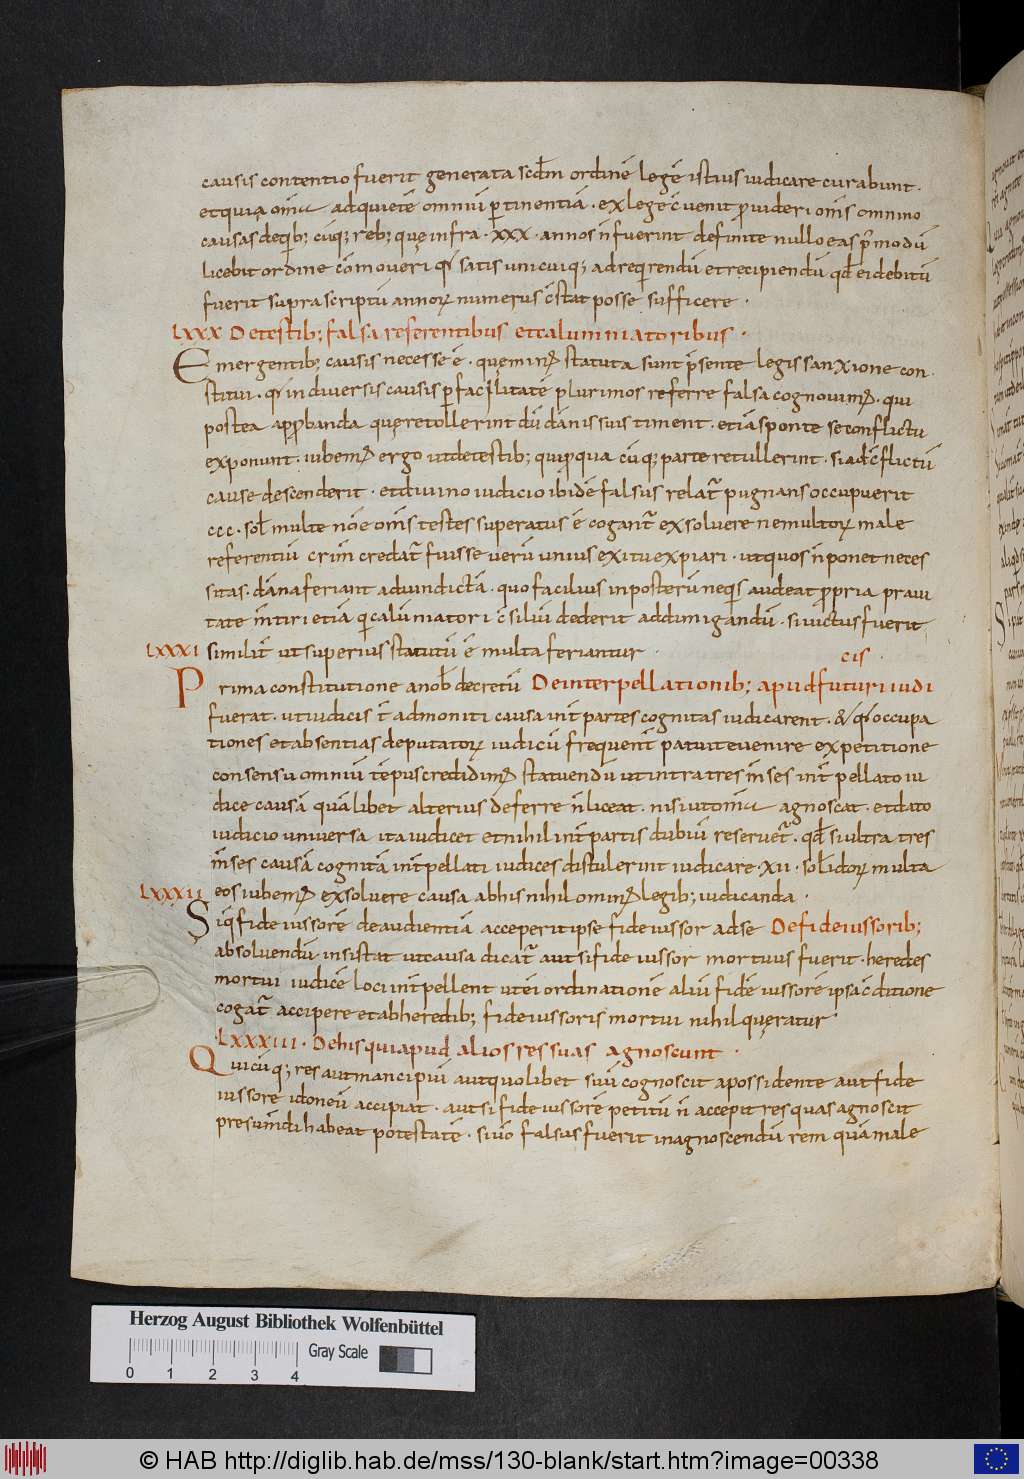 causis contentio fuerit generata scdm ordinē legē istius iudicare curabunt.
et quia omia ad quietē omniū ꝑtinentiā. ex lege c̄uenit ꝓuideri om̄s omnino
causas de qib; cūq; reb; quę infra. xxx. annos n̄ fuerint definite nullo eas p̄modū
licebit ordine cōmoueri qi satis unicuiq; ad reqirendū et recipiendū qd ei debitū
fuerit supra scriptū annoꝝ numerus c̄stat posse sufficere.
LXXX De testib; falsa referentibus et calumniatoribus.
Emergentib; causis necesse ē. quęminꝰ statuta sunt p̄sente legis sanxione con
stitui. qi in diuersis causis ꝑ facilitatē plurimos referre falsa cognouimꝰ. qui
postea apꝓbanda quę retollerint dū dānis suis timent. etiā sponte se conflictu
exponunt. iubemꝰ ergo ut de testib; qui ꝓ qua cūq; parte retullerint. si ad c̄flictū
cause descenderit. et diuino iudicio ibidē falsus relat̄ pugnans occupuerit
ccc. sol multe noīe om̄s testes superatus ē cogant̄ exsoluere ne multoꝝ male
referentiū crim̄ credat̄ fuisse uerū unius exitu expiari. ut quos n̄ ponet neces
sitas. dāna feriant ad uindictā. quo facilius in posterū neqis audeat ꝓpria praui
tate m̄tiri etiā qi calūmiatori c̄siliū dederit addimigandū. si uictus fuerit
LXXXI similit̄ ut superius statutū ē multa feriantur.
cis.
Prima constitutione a nob decretū De interpellationib; apud futuri iudi
fuerat. ut iudicis t̄ admoniti causa int̄ partes cognitas iudicarent. & qi occupa
tiones et absentias deputatoꝝ iudicū frequent̄ patuit euenire ex petitione
consensu omniū tēpus credidimꝰ statuendū ut intra tres m̄ses int̄pellato iu
dice causā quālibet alterius deferre n̄ liceat. nisi ut omia agnoscat. et dato
iudicio uniuersa ita iudicet et nihil int̄ partis dubiū reseruet̄. qd si ultra tres
m̄ses causā cognitā int̄pellati iudices distulerint iudicare. xii. solidoꝝ multa
LXXXII eos iubemꝰ exsoluere causa ab his nihil ominꝰ legib; iudicanda.
Siq fideiussorē de audientiā acceperit ipse fideiussor ad se De fideiussorib;
absoluendū insistat ut causa dicat̄ aut si fideiussor mortuus fuerit. heredes
mortui iudicē loci int̄pellent ut ei ordinationē aliū fideiussorē ipsa c̄ditione
cogat̄ accipere et ab heredib; fideiussoris mortui nihil quęratur
.LXXXIII. De his qui apud alios res suas agnoscunt.
Quicūq; res aut mancipiū aut quolibet suū cognoscit a possidente aut fide
iussorē idoneū accipiat. aut si fideiussorē petitū n̄ accepit res quas agnoscit
presumdi habeat potestatē. si uō falsus fuerit in agnoscendū rem quā male
Herzog August Bibliothek Wolfenbüttel
Gray Scale
0 1 2 3 4
© HAB http://diglib.hab.de/mss/130-blank/start.htm?image=00338